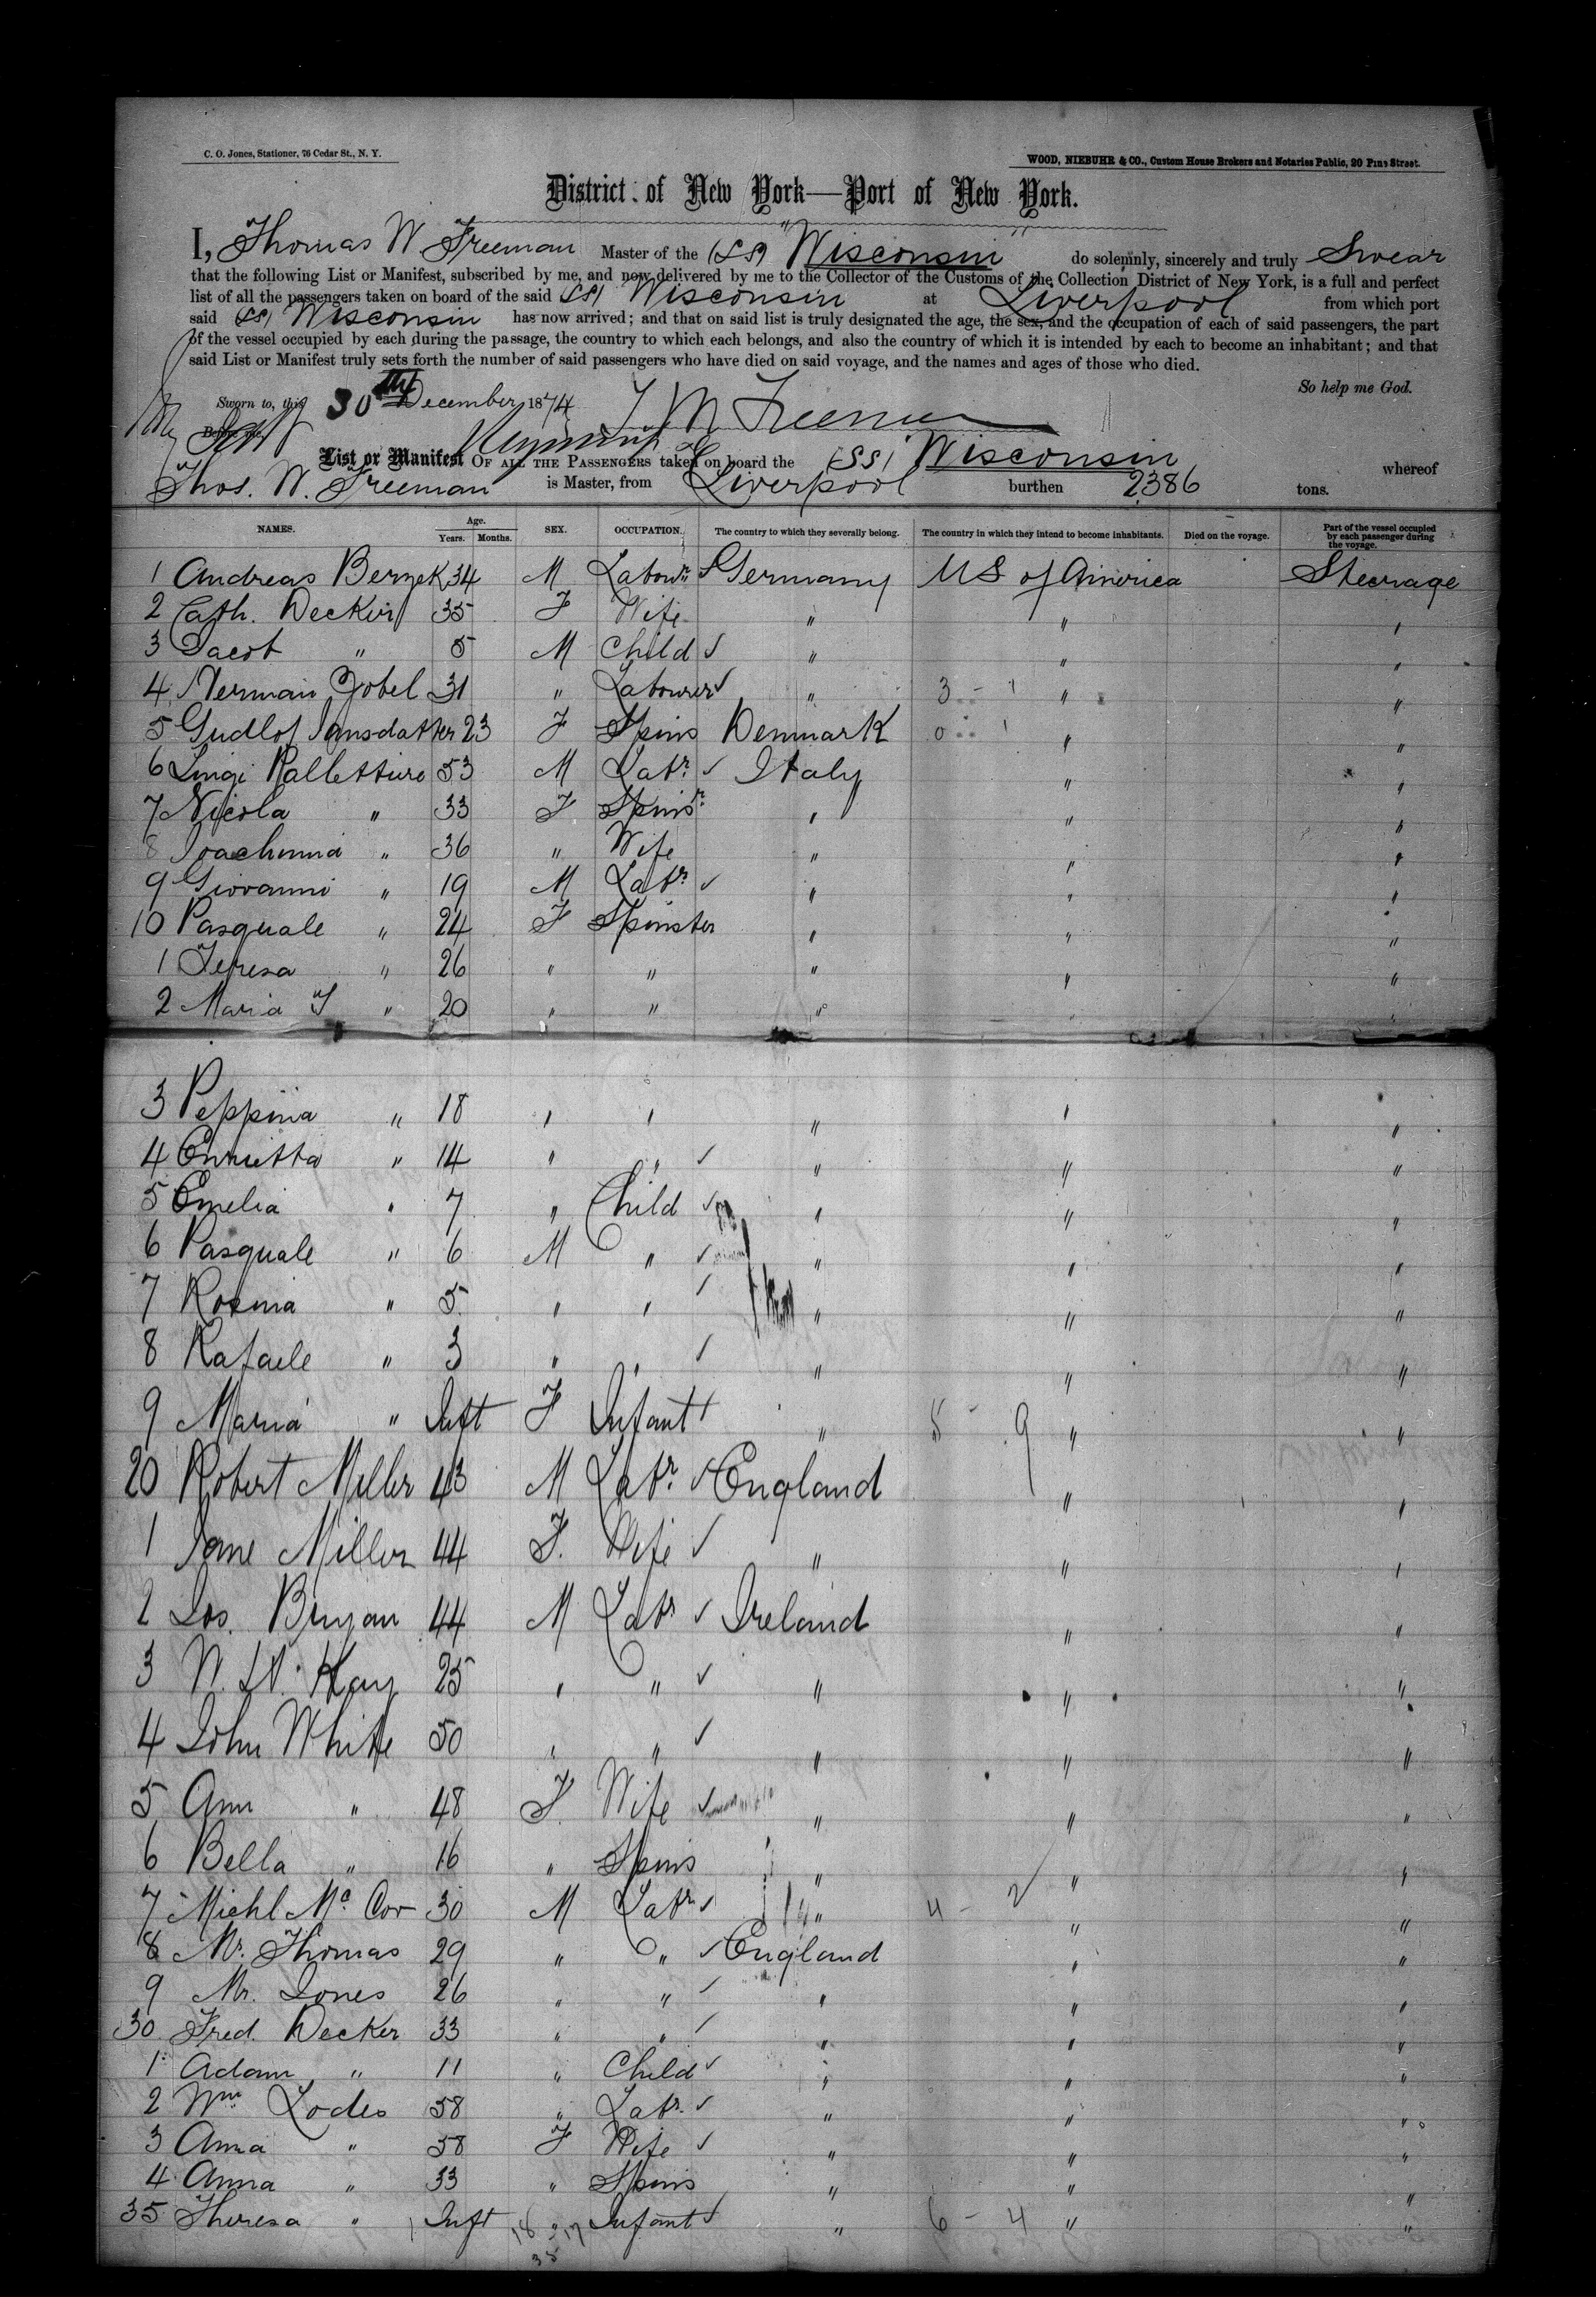 C. O. Jones, Stationer, 76 Cedar St., N. Y.
WOOD, NIEBUHR & CO., Custom House Brokers and Notaries Public, 20 Pine Street.
District of New York—Port of New York.
I, Thomas W Freeman Master of the (SS) "Wisconsin" do solemnly, sincerely and truly Swear
that the following List or Manifest, subscribed by me, and now delivered by me to the Collector of the Customs of the Collection District of New York, is a full and perfect
list of all the passengers taken on board of the said (SS) Wisconsin at Liverpool from which port
said (SS) Wisconsin has now arrived; and that on said list is truly designated the age, the sex, and the occupation of each of said passengers, the part
of the vessel occupied by each during the passage, the country to which each belongs, and also the country of which it is intended by each to become an inhabitant; and that
said List or Manifest truly sets forth the number of said passengers who have died on said voyage, and the names and ages of those who died.
So help me God.
Sworn to, this 30th December 1874 T W Freeman
Before me
List or Manifest OF ALL THE PASSENGERS taken on board the (SS) Wisconsin whereof
Thos. W. Freeman is Master, from Liverpool burthen 2386 tons.
NAMES. Age. Years. Months. SEX. OCCUPATION. The country to which they severally belong. The country in which they intend to become inhabitants. Died on the voyage. Part of the vessel occupied by each passenger during the voyage.
1 Andreas 34 M Labour Germany US of America Steerage
2 Cath. Decker 35 F Wife " " "
3 Jacob " 5 M Child " " "
4 Herman Zobel 31 " Labourer " 3 - 1 " "
5 Jansdatter 23 F Spins Denmark 0 1 " "
6 Luigi 53 M Labr Italy " "
7 Nicola " 33 F Spinsr " " "
8 " 36 " Wife " " "
9 Giovanni " 19 M Labr " " "
10 Pasquale " 24 F Spinster " " "
1 Teresa " 26 " " " " "
2 Maria T " 20 " " " " "
3 Peppina " 18 " " " " "
4 Enrietta " 14 " " " " "
5 Emelia " 7 " Child " " "
6 Pasquale " 6 M " " " "
7 Rosina " 5 " " " " "
8 Rafaele " 3 " " " " "
9 Maria " Inft F Infant " 5 - 9 " "
20 Robert Miller 43 M Labr England " "
1 Jane Miller 44 F. Wife " " "
2 Jos. Bryan 44 M Labr Ireland " "
3 Kay 25 " " " " "
4 John White 50 " " " " "
5 Ann " 48 F. Wife " " "
6 Bella " 16 " Spins " " "
7 Michl Mc Cor 30 M Labr " 4 - 2 " "
8 Mr. Thomas 29 " " England " "
9 Mr. Jones 26 " " " " "
30 Fred. Decker 33 " " " " "
1 Adam " 11 " Child " " "
2 Wm Lodes 58 " Labr. " " "
3 Anna " 58 F Wife " " "
4 Anna " 33 " Spins " " "
35 Theresa " Inft " Infant " 6 - 4 " "
18 17
35